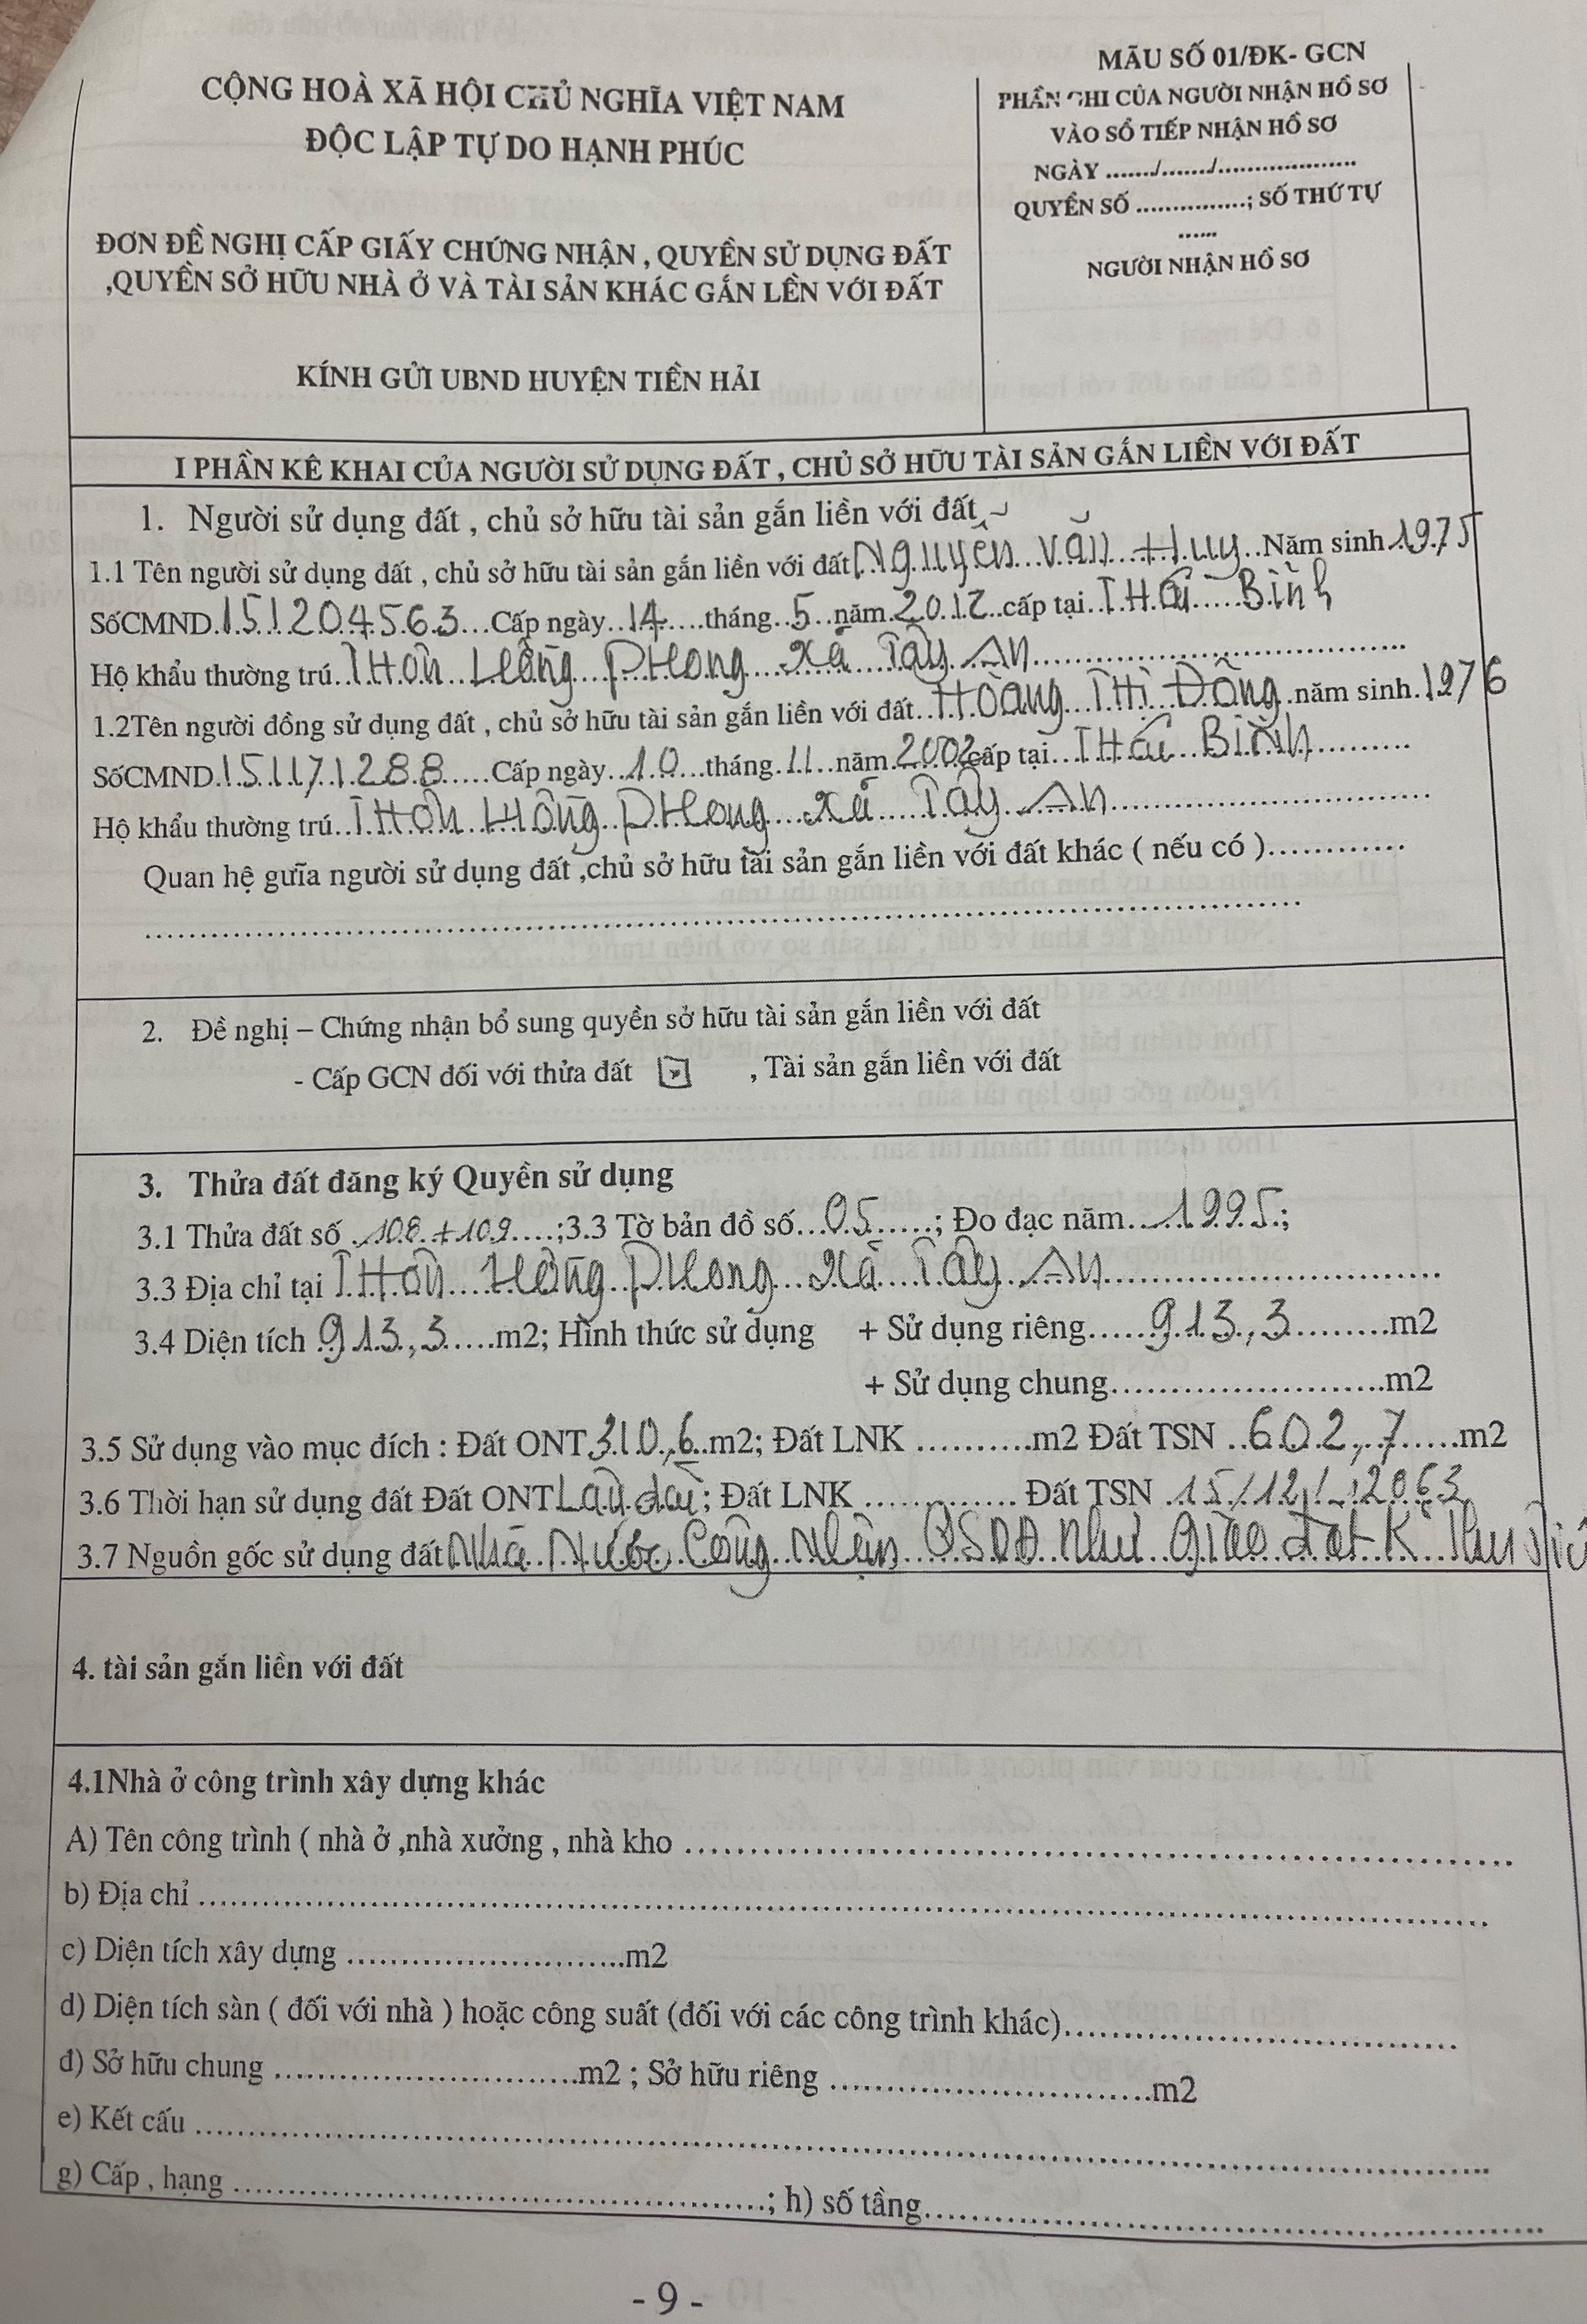 MẪU SỐ 01/ĐK- GCN
CỘNG HOÀ XÃ HỘI CHỦ NGHĨA VIỆT NAM
ĐỘC LẬP TỰ DO HẠNH PHÚC
ĐƠN ĐỀ NGHỊ CẤP GIẤY CHỨNG NHẬN , QUYỀN SỬ DỤNG ĐẤT
,QUYỀN SỞ HỮU NHÀ Ở VÀ TÀI SẢN KHÁC GẮN LỀN VỚI ĐẤT
KÍNH GỬI UBND HUYỆN TIỀN HẢI
PHẦN GHI CỦA NGƯỜI NHẬN HỒ SƠ
VÀO SỔ TIẾP NHẬN HỒ SƠ
NGÀY ......./......./....................
QUYỀN SỐ ...............; SỐ THỨ TỰ
......
NGƯỜI NHẬN HỒ SƠ
I PHẦN KÊ KHAI CỦA NGƯỜI SỬ DỤNG ĐẤT , CHỦ SỞ HỮU TÀI SẢN GẮN LIỀN VỚI ĐẤT
1. Người sử dụng đất , chủ sở hữu tài sản gắn liền với đất
1.1 Tên người sử dụng đất , chủ sở hữu tài sản gắn liền với đất Nguyễn Văn Huy Năm sinh 1975
SốCMND 151204563 Cấp ngày 14 tháng 5 năm 2012 cấp tại THái Bình
Hộ khẩu thường trú THôn Hồng PHong xã Tây An
1.2Tên người đồng sử dụng đất , chủ sở hữu tài sản gắn liền với đất HOàng THị Đông năm sinh 1976
SốCMND 151171288 Cấp ngày 10 tháng 11 năm 2002 cấp tại THái Bình
Hộ khẩu thường trú THôn Hồng PHong xã Tây An
Quan hệ gưĩa người sử dụng đất ,chủ sở hữu tài sản gắn liền với đất khác ( nếu có )............
2. Đề nghị – Chứng nhận bổ sung quyền sở hữu tài sản gắn liền với đất
- Cấp GCN đối với thửa đất , Tài sản gắn liền với đất
3. Thửa đất đăng ký Quyền sử dụng
3.1 Thửa đất số 108+109 ;3.3 Tờ bản đồ số 05 ; Đo đạc năm 1995;
3.3 Địa chỉ tại THôn Hồng PHong xã Tây An
3.4 Diện tích 913,3 m2; Hình thức sử dụng + Sử dụng riêng 913,3 m2
+ Sử dụng chung..........................m2
3.5 Sử dụng vào mục đích : Đất ONT 310,6 m2; Đất LNK ...........m2 Đất TSN 602,7 m2
3.6 Thời hạn sử dụng đất Đất ONT Lâu dài ; Đất LNK .............. Đất TSN 15/12/2063
3.7 Nguồn gốc sử dụng đất Nhà Nước Công Nhận QSDĐ Như Giao đất K Thu
4. tài sản gắn liền với đất
4.1Nhà ở công trình xây dựng khác
A) Tên công trình ( nhà ở ,nhà xưởng , nhà kho ..............................
b) Địa chỉ ..............................
c) Diện tích xây dựng ..........................m2
d) Diện tích sàn ( đối với nhà ) hoặc công suất (đối với các công trình khác)..............................
đ) Sở hữu chung .............................m2 ; Sở hữu riêng ..............................m2
e) Kết cấu ..............................
g) Cấp , hạng ..............................; h) số tầng..............................
- 9 -